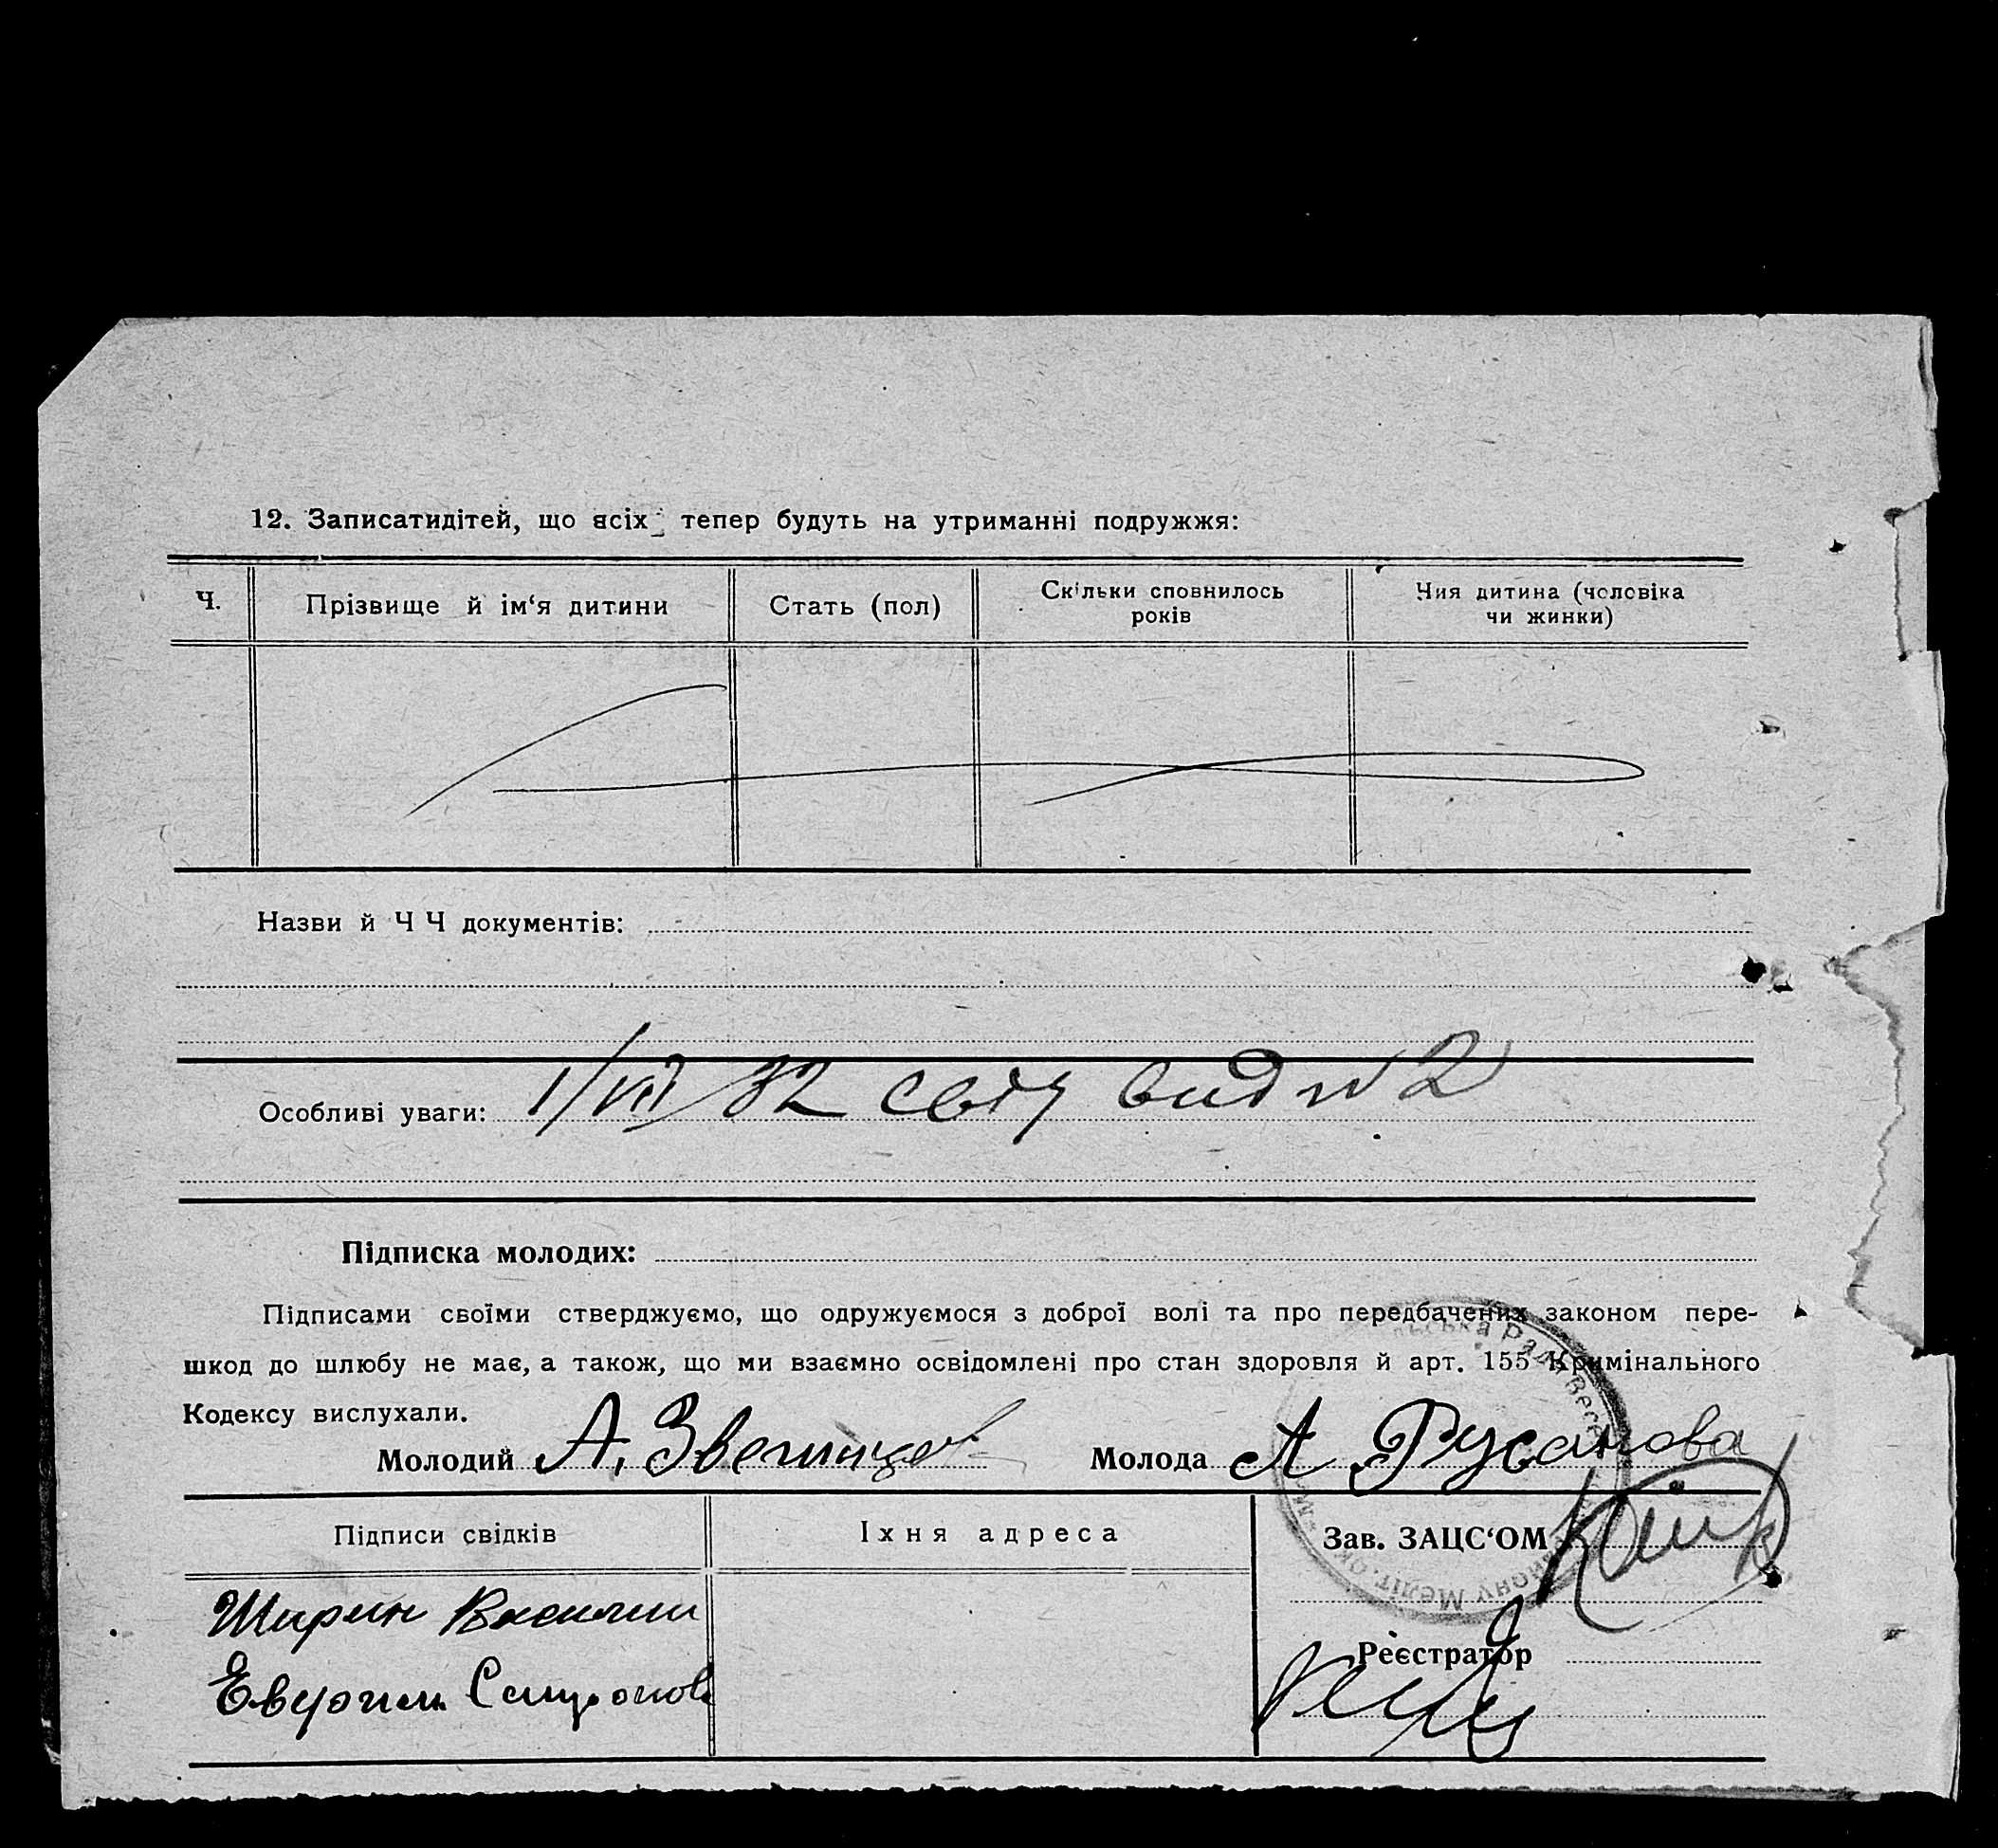 12. Записатидітей, що всіх тепер будуть на утриманні подружжя:
Ч.
Прізвище й ім‘я дитини
Стать (пол)
Скільки сповнилось
років
Чия дитина (чоловіка
чи жинки)
Назви й Ч Ч документів:
Особливі уваги: 1/VII/32 свід вид № 2
Підписка молодих:
Підписами своїми стверджуємо, що одружуємося з доброї волі та про передбачених законом пере-
шкод до шлюбу не має, а також, що ми взаємно освідомлені про стан здоровля й арт. 155 Кримінального
Кодексу вислухали.
Молодий А. Звегинцов Молода А Русанова
Підписи свідків
Іхня адреса
Зав. ЗАЦС‘ОМ
Ширин Василий
Реєстратор
ьська Рада Весе
йону Меліт. ок